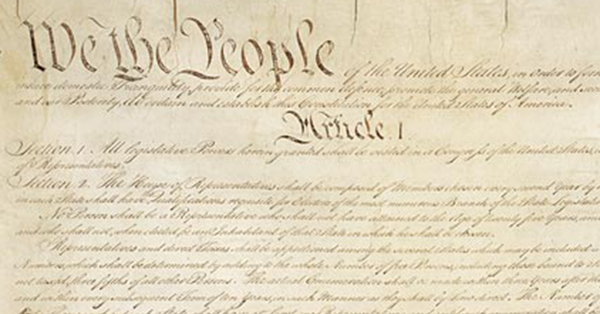 We the People of the United States, in Order to form
insure domestic Tranquility, provide for the common defence, promote the general Welfare, and secure
and our Posterity, do ordain and establish this Constitution for the United States of America.
Article. I.
Section. 1. All legislative Powers herein granted shall be vested in a Congress of the United States,
of Representatives.
Section. 2. The House of Representatives shall be composed of Members chosen every second Year by
in each State shall have Qualifications requisite for Electors of the most numerous Branch of the State Legislature
No Person shall be a Representative who shall not have attained to the Age of twenty five Years, and
and who shall not, when elected, be an Inhabitant of that State in which he shall be chosen.
Representatives and direct Taxes shall be apportioned among the several States which may be included
Numbers, which shall be determined by adding to the whole Number of free Persons, including those bound to
not taxed, three fifths of all other Persons. The actual Enumeration shall be made within three Years after the
and within every subsequent Term of ten Years, in such Manner as they shall by Law direct. The Number of